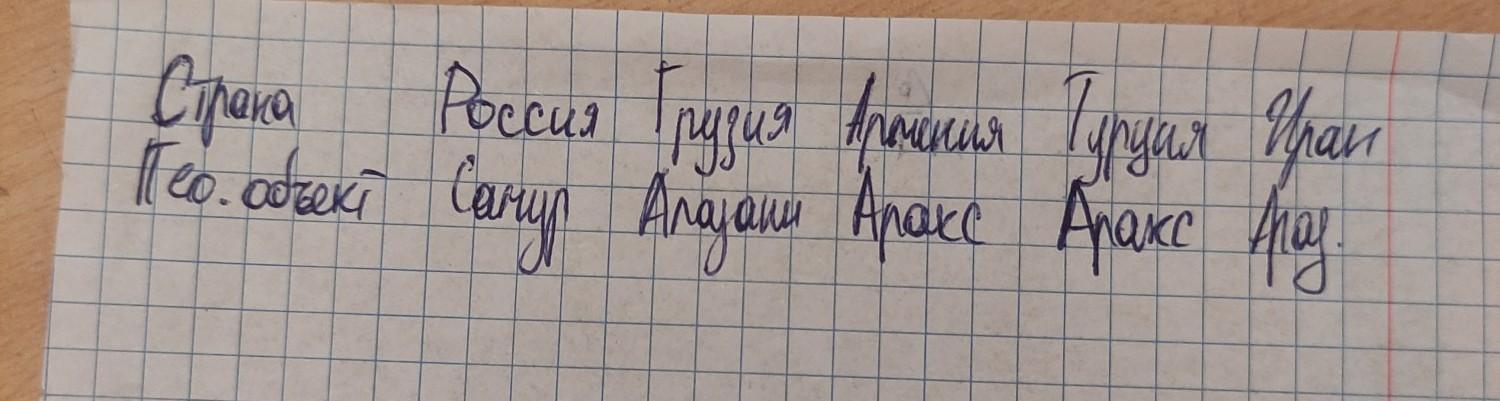 Страна Россия Грузия Армения Турция Иран
Гео. объект Самур Алазани Аракс Аракс Араз.